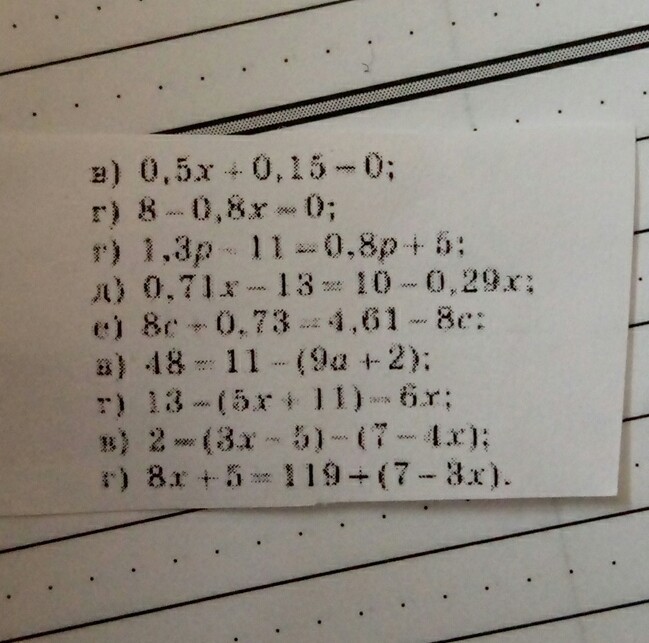 в) 0,5x + 0,15 = 0;
г) 8 - 0,8x = 0;
г) 1,3p - 11 = 0,8p + 5;
д) 0,71x - 13 = 10 - 0,29x;
е) 8c + 0,73 = 4,61 - 8c;
в) 48 = 11 - (9a + 2);
г) 13 - (5x + 11) = 6x;
в) 2 = (3x - 5) - (7 - 4x);
г) 8x + 5 = 119 + (7 - 3x).